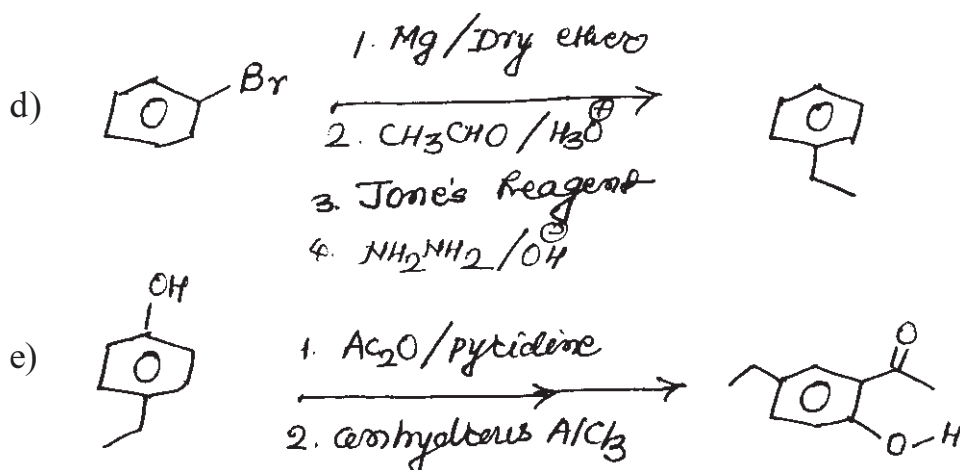 1. Mg/Dry ether
d) Br
2. CH3CHO/H3O⊕
3. Jone's Reagent
4. NH2NH2/OH⊖
OH
e) 1. Ac2O/pyridine O
2. anhydrous AlCl3 O-H